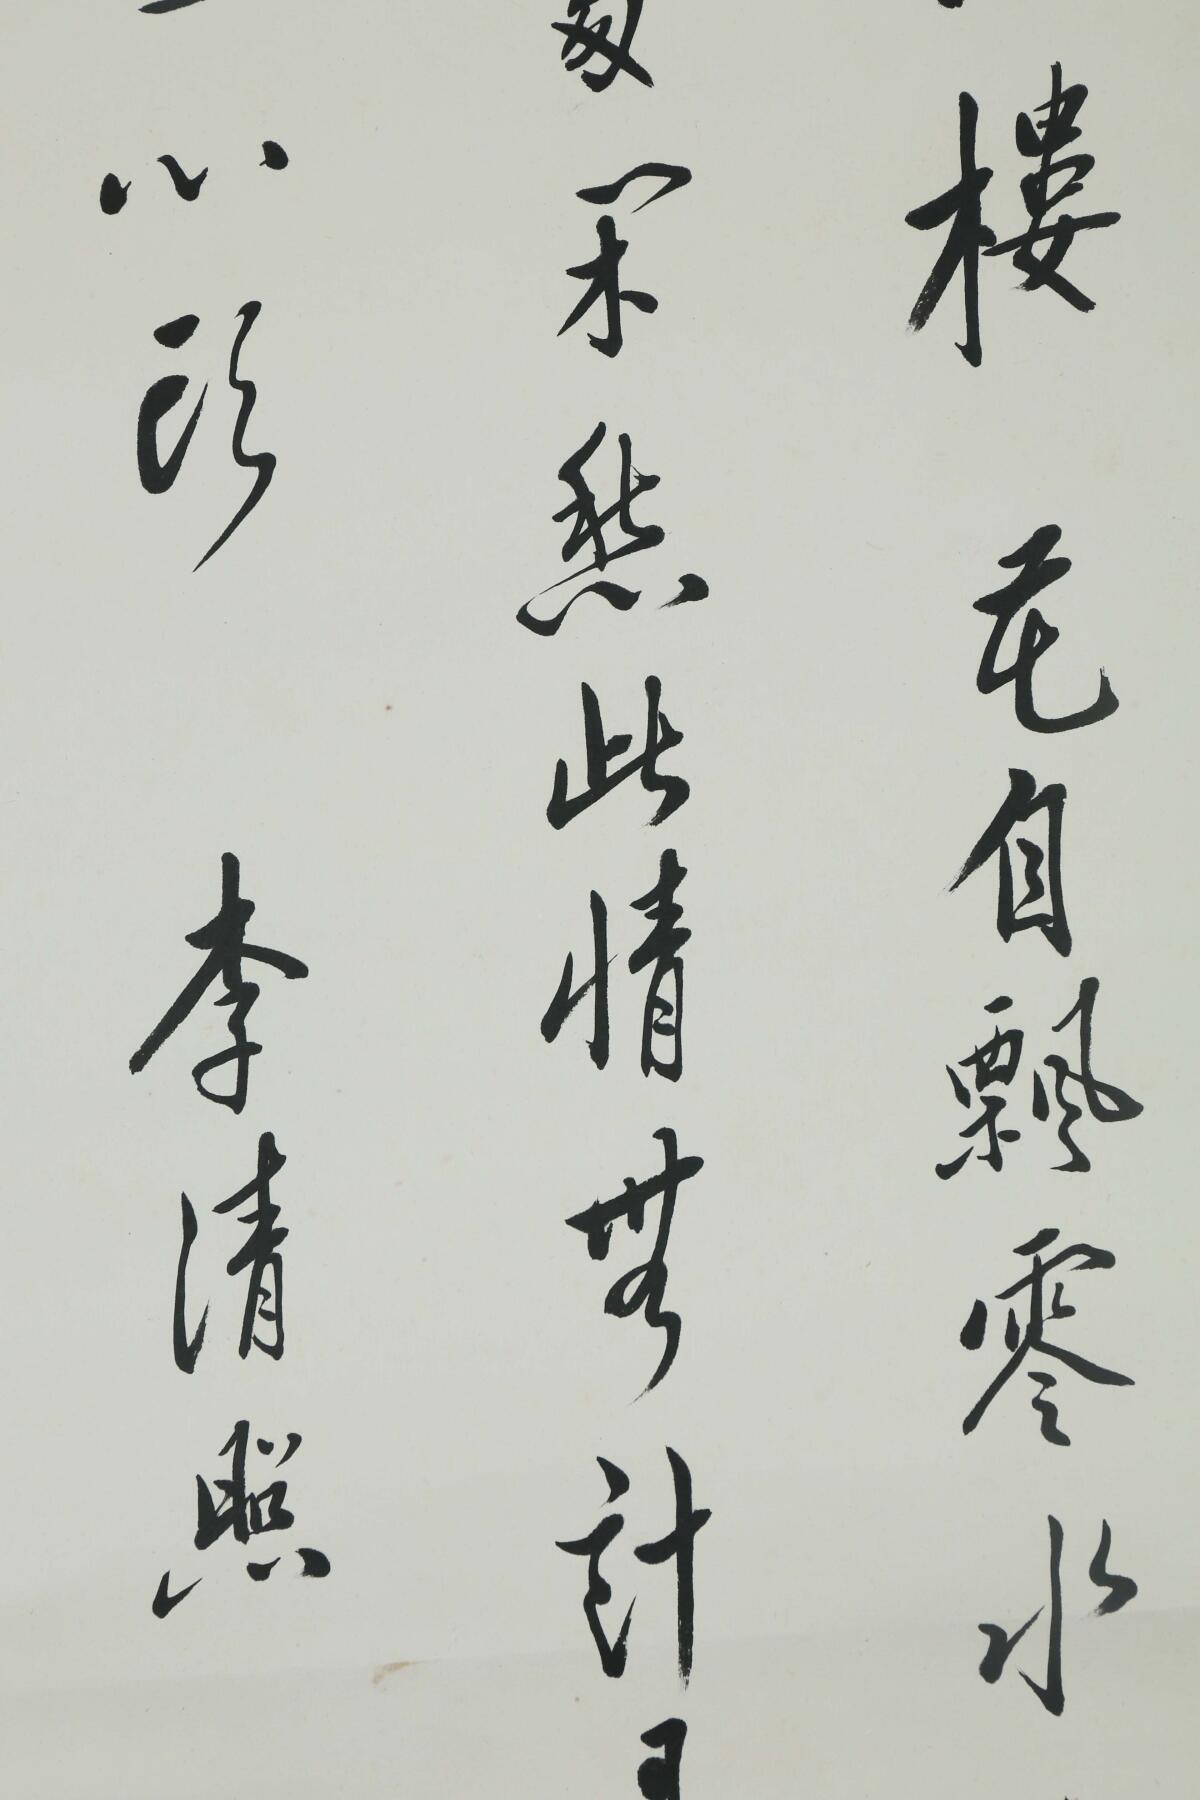 樓花自飄零水
闲愁此情無計
心頭 李清照